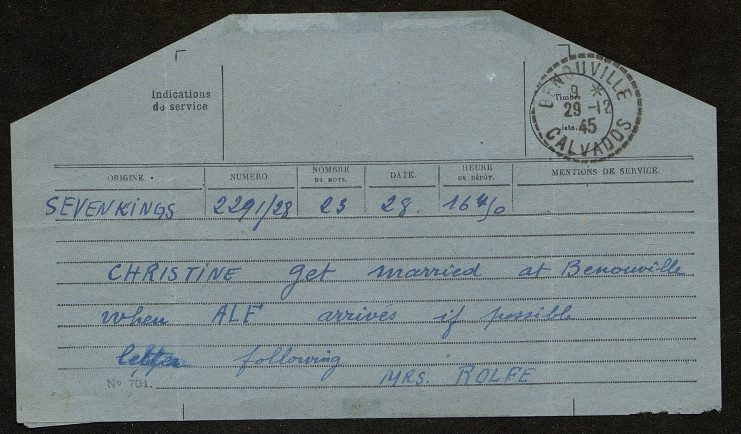 Indications
de service
BENOUVILLE
Timbre
9 *
29 -12
45
CALVADOS
ORIGINE. NUMÉRO. NOMBRE DE MOTS. DATE. HEURE DE DÉPÔT. MENTIONS DE SERVICE.
SEVENKINGS 2291/28 23 28. 16 40
CHRISTINE get married at Benouville
when ALF arrives if possible
letter following
Nº 701. MRS. ROLFE